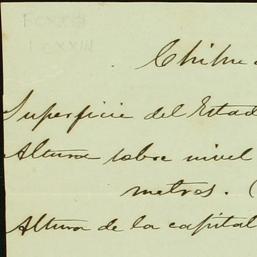 Chihu
Superficie del Estad
Altura sobre nivel
metros. (
Altura de la capital